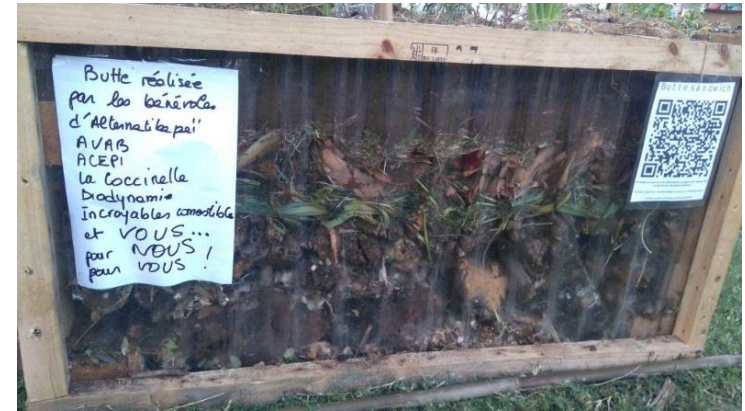 Butte réalisée
par les bénévoles
d'Alternatiba peï
AVAB
ACEPI
la Coccinelle
Biodynamie
Incroyables comestibles
et VOUS...
pour NOUS /
pour VOUS !
Buttesandwich